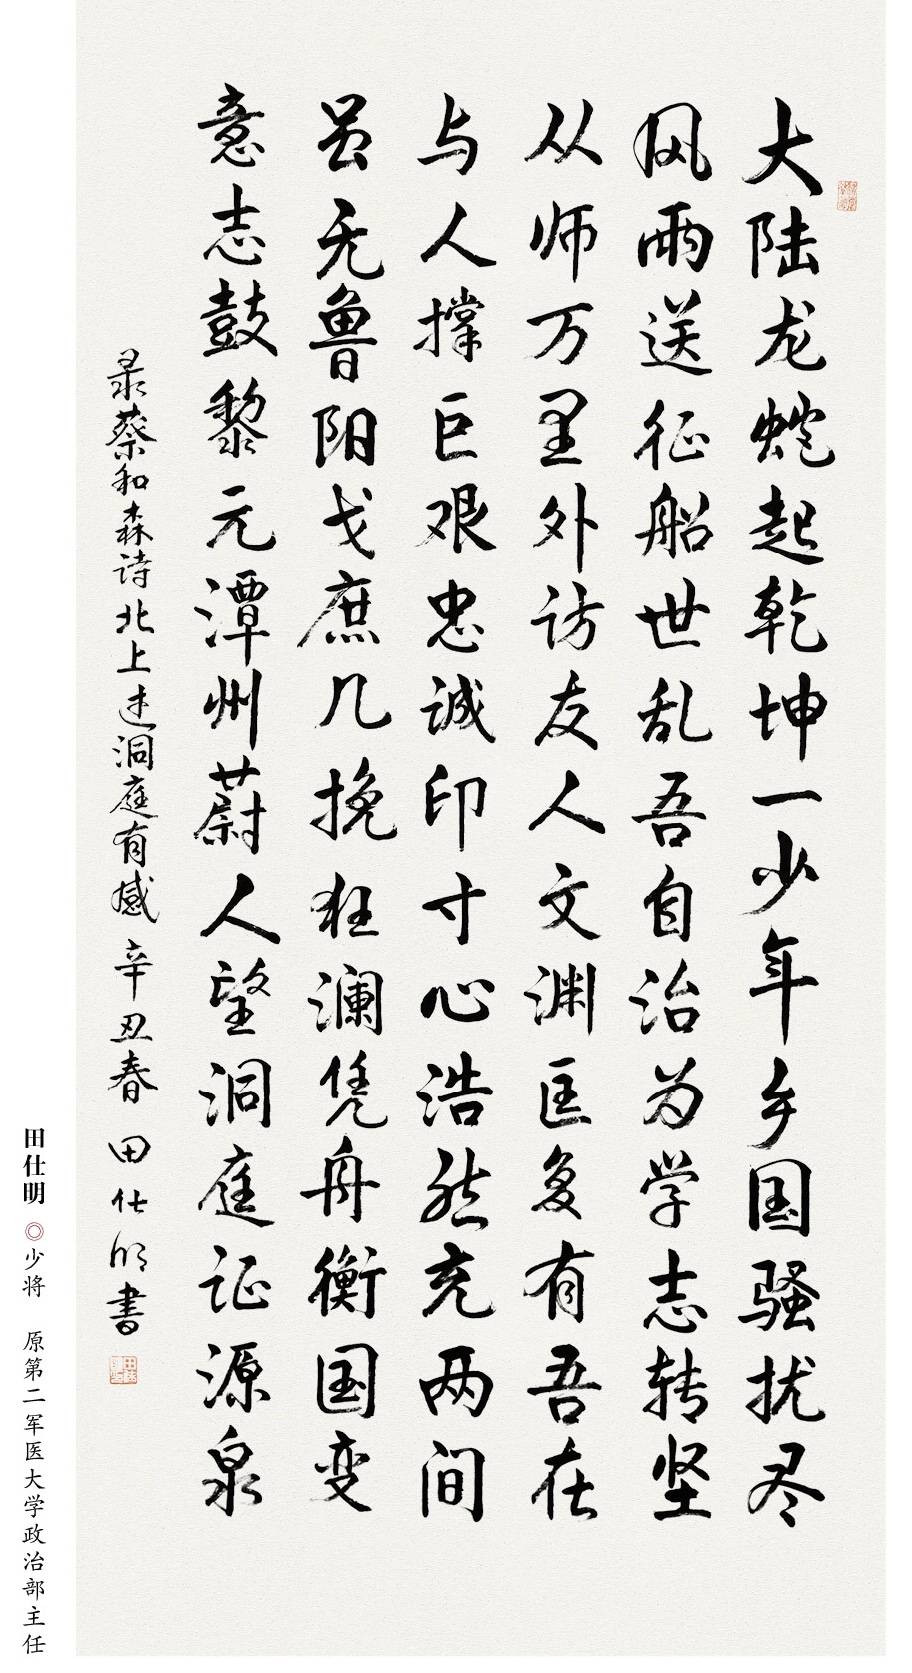 大陆龙蛇起乾坤一少年乡国骚扰尽
风雨送征船世乱吾自治为学志转坚
从师万里外访友人文渊匡复有吾在
与人撑巨艰忠诚印寸心浩然充两间
虽无鲁阳戈庶几挽狂澜凭舟衡国变
意志鼓黎元潭州蔚人望洞庭证源泉
录蔡和森诗北上过洞庭有感 辛丑春 田仕明书
田仕明 ◎ 少将 原第二军医大学政治部主任